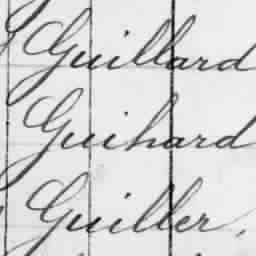 Guillard
Guihard
Guiller.